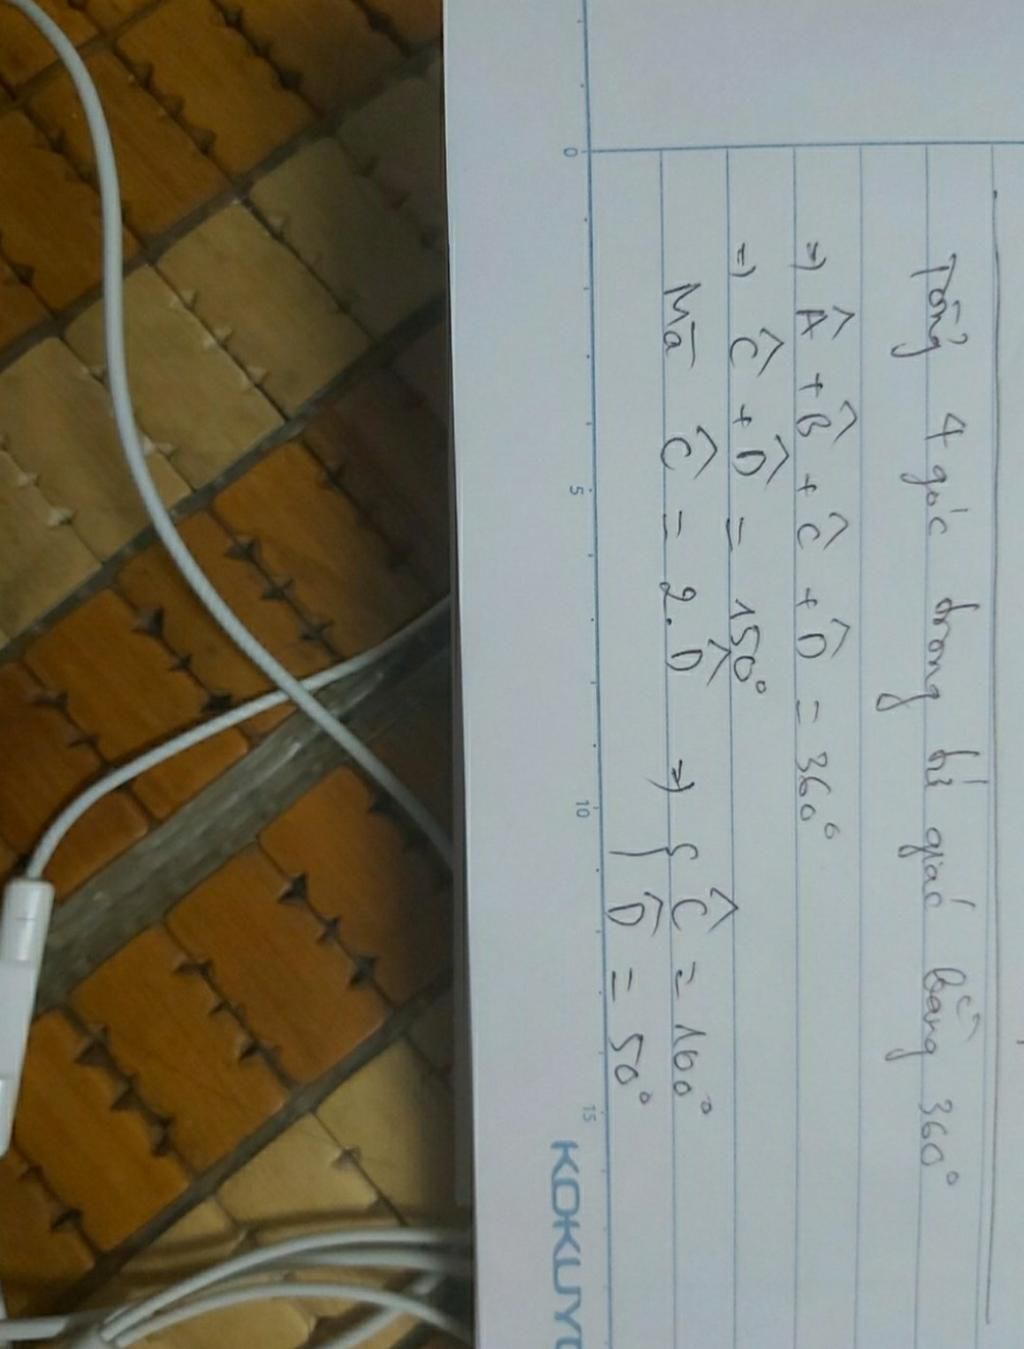 Tổng 4 góc trong tứ giác bằng 360°
=) Â + B̂ + Ĉ + D̂ = 360°
=) Ĉ + D̂ = 150°
Mà Ĉ = 2.D̂ =) { Ĉ = 100°
D̂ = 50°
0 5 10 15
KOKUYO